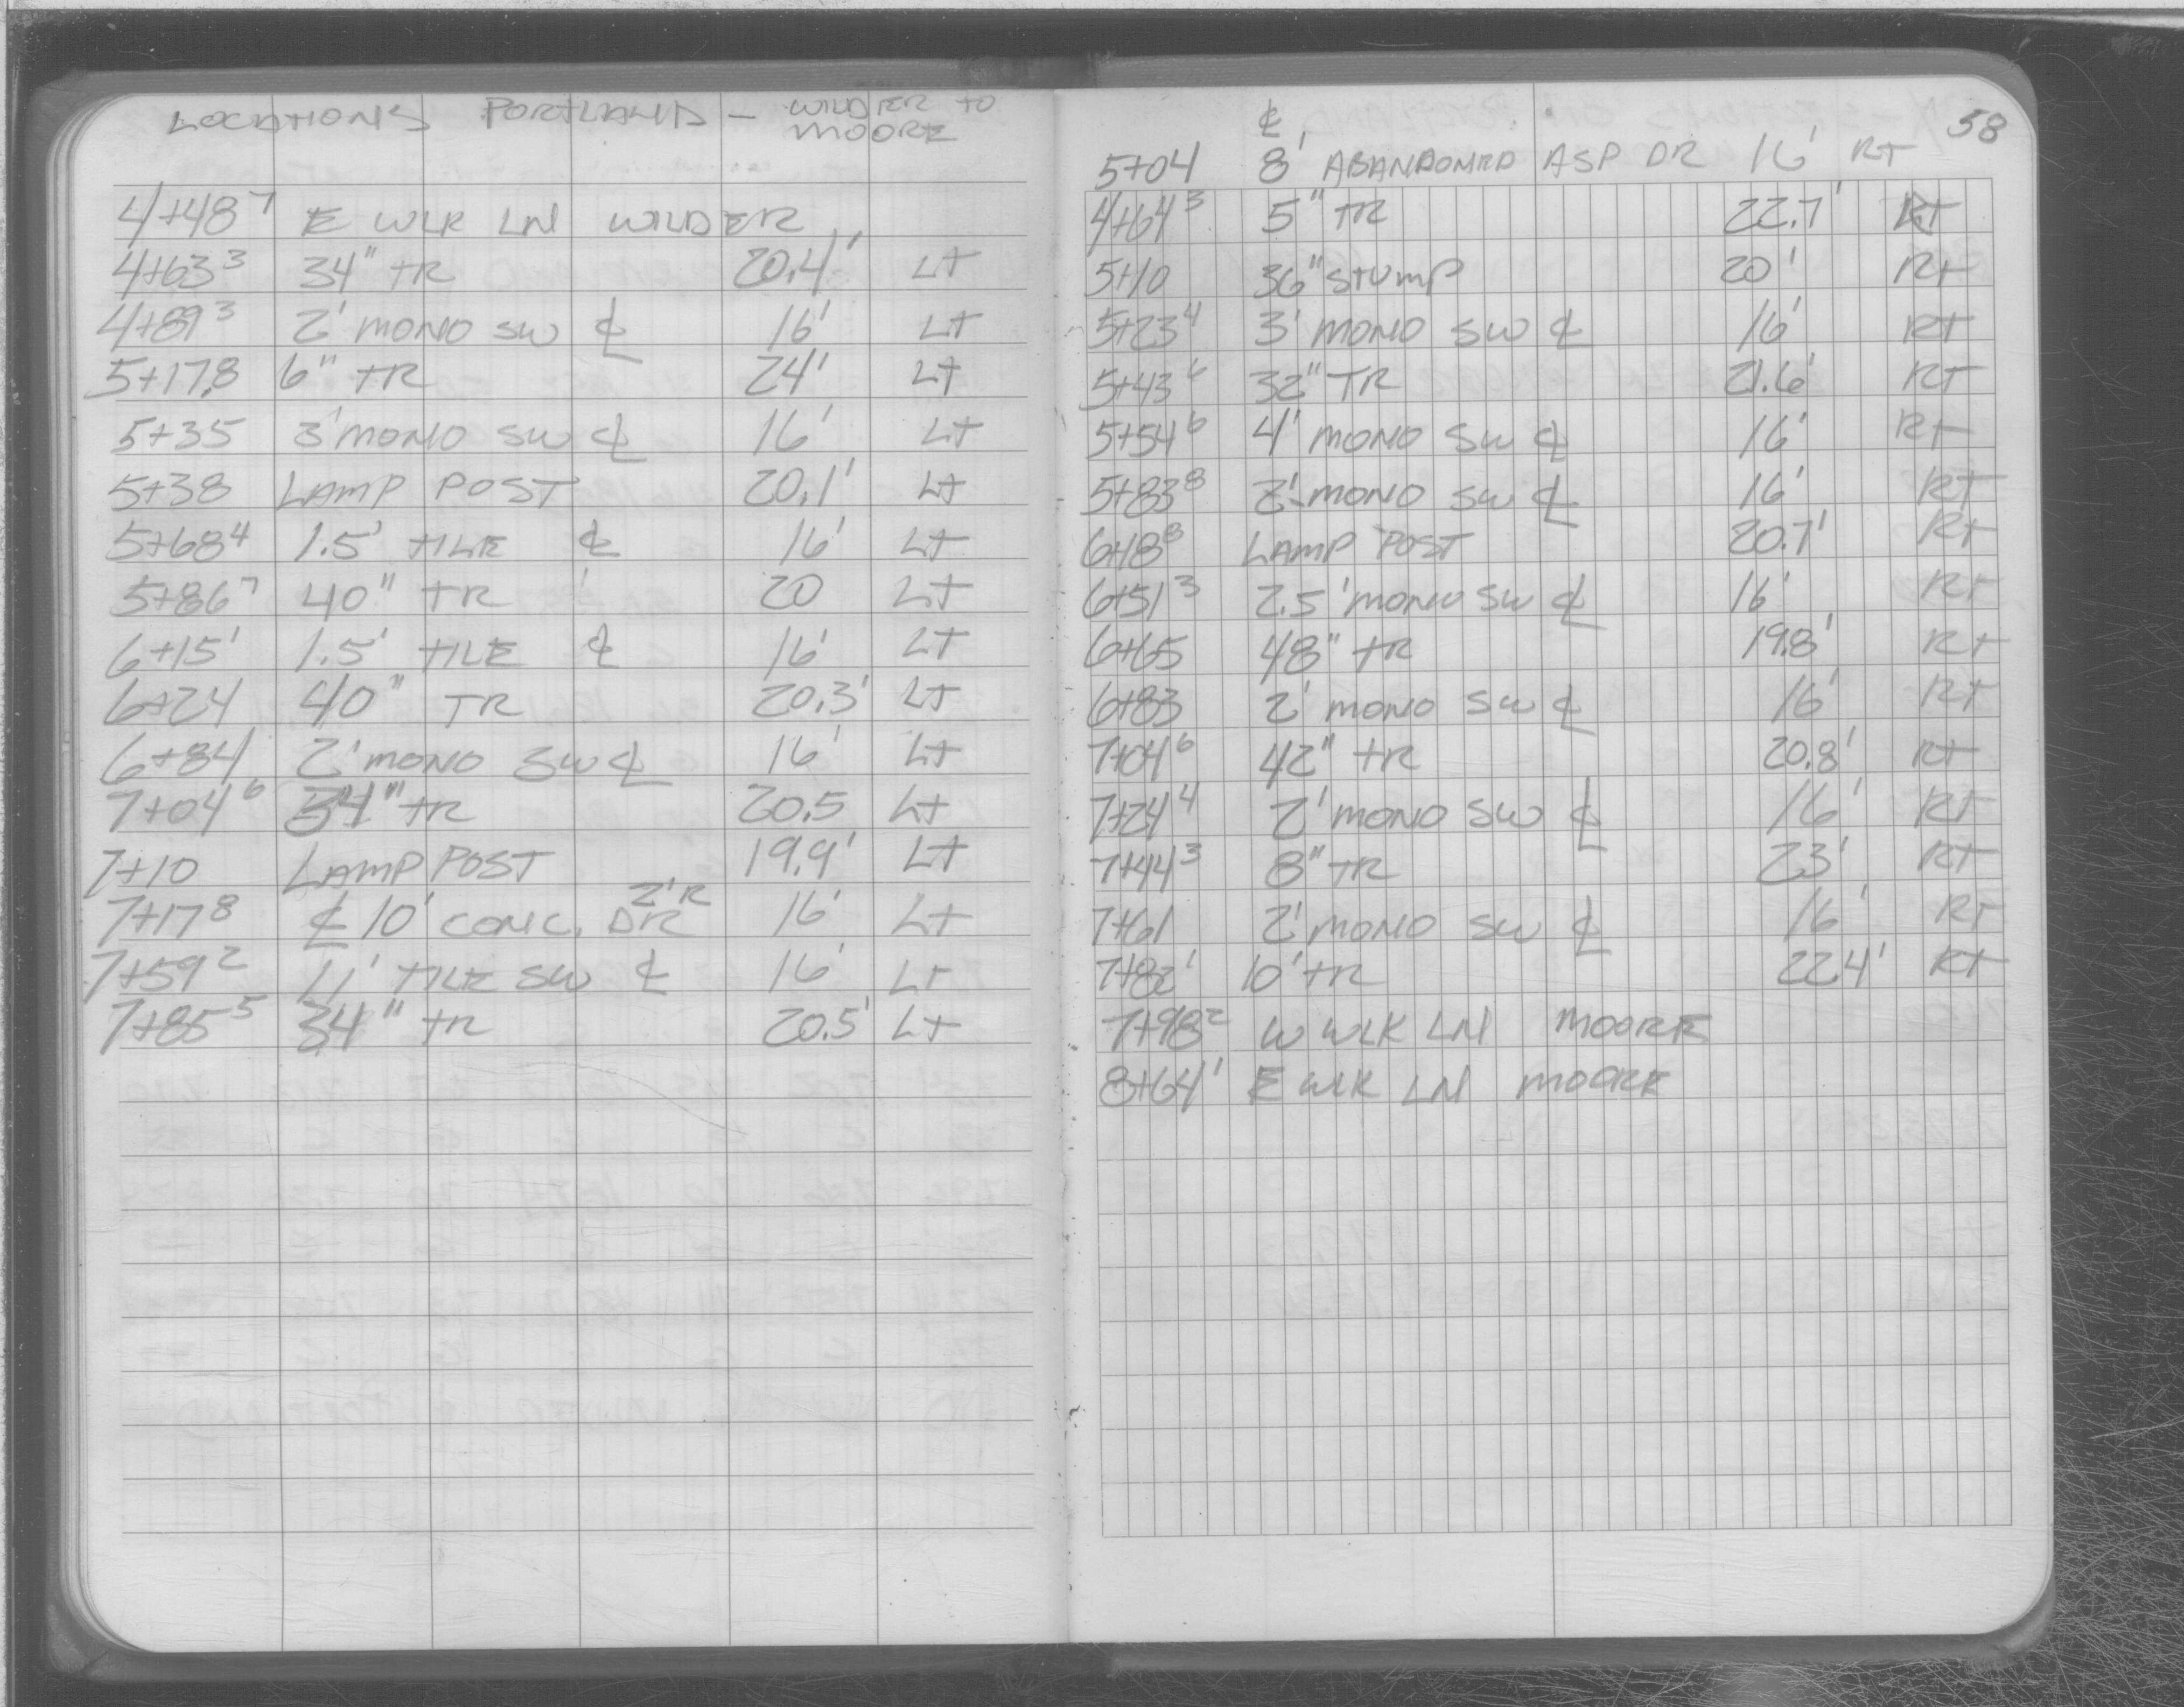 LOCATIONS PORTLAND - WILDER TO
MOORE
4+48⁷ E WLK LN WILDER
4+63³ 34" TR 20.4' LT
4+89³ 2' MONO SW ℄ 16' LT
5+17.8 6" TR 24' LT
5+35 3' MONO SW ℄ 16' LT
5+38 LAMP POST 20.1' LT
5+68⁴ 1.5' TILE ℄ 16' LT
5+86⁷ 40" TR 20 LT
6+15¹ 1.5' TILE ℄ 16' LT
6+24 40" TR 20.3' LT
6+84 2' MONO SW ℄ 16' LT
7+04⁶ 34" TR 20.5 LT
7+10 LAMP POST 19.9' LT
2'R
7+17⁸ ℄ 10' CONC. DR 16' LT
7+59² 11' TILE SW ℄ 16' LT
7+85⁵ 34" TR 20.5' LT
58
℄
5+04 8' ABANDONED ASP DR 16' RT
4+64³ 5" TR 22.7' RT
5+10 36" STUMP 20' RT
5+23⁴ 3' MONO SW ℄ 16' RT
5+43⁶ 32" TR 21.6' RT
5+54⁶ 4' MONO SW ℄ 16' RT
5+83⁸ 2' MONO SW ℄ 16' RT
6+18⁸ LAMP POST 20.7' RT
6+51³ 2.5' MONO SW ℄ 16' RT
6+65 48" TR 19.8' RT
6+83 2' MONO SW ℄ 16' RT
7+04⁶ 42" TR 20.8' RT
7+24⁴ 2' MONO SW ℄ 16' RT
7+44³ 8" TR 23' RT
7+61 2' MONO SW ℄ 16' RT
7+82¹ 10' TR 22.4' RT
7+98² W WLK LN MOORE
8+64¹ E WLK LN MOORE